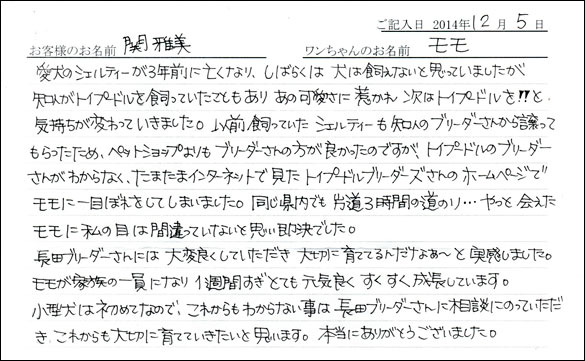 ご記入日 2014年12月5日
お客様のお名前 関 雅美 ワンちゃんのお名前 モモ
愛犬のシェルティーが3年前に亡くなり、しばらくは 犬は飼えないと思っていましたが
知人がトイプードルを飼っていたこともあり あの可愛さに 惹かれ 次はトイプードルを!!と、
気持ちが変わっていきました。以前、飼っていた シェルティーも 知人のブリーダーさんから譲って
もらったため、ペットショップよりも ブリーダーさんの方が 良かったのですが、トイプードルのブリーダー
さんがわからなく、たまたまインターネットで 見た トイプードルブリーダーズさんの ホームページで
モモに一目ぼれをしてしまいました。同じ県内でも 片道3時間の道のり… やっと 会えた
モモに 私の目は 間違っていないと 思い 即決でした。
長田ブリーダーさんには 大変良くしていただき 大切に育ててるんだなぁ〜と 実感しました。
モモが家族の一員になり 1週間すぎとても 元気良く すくすく成長しています。
小型犬は初めてなので、これからもわからない事は 長田ブリーダーさんに相談にのっていただ
き、これからも大切に育てていきたいと思います。本当にありがとうございました。